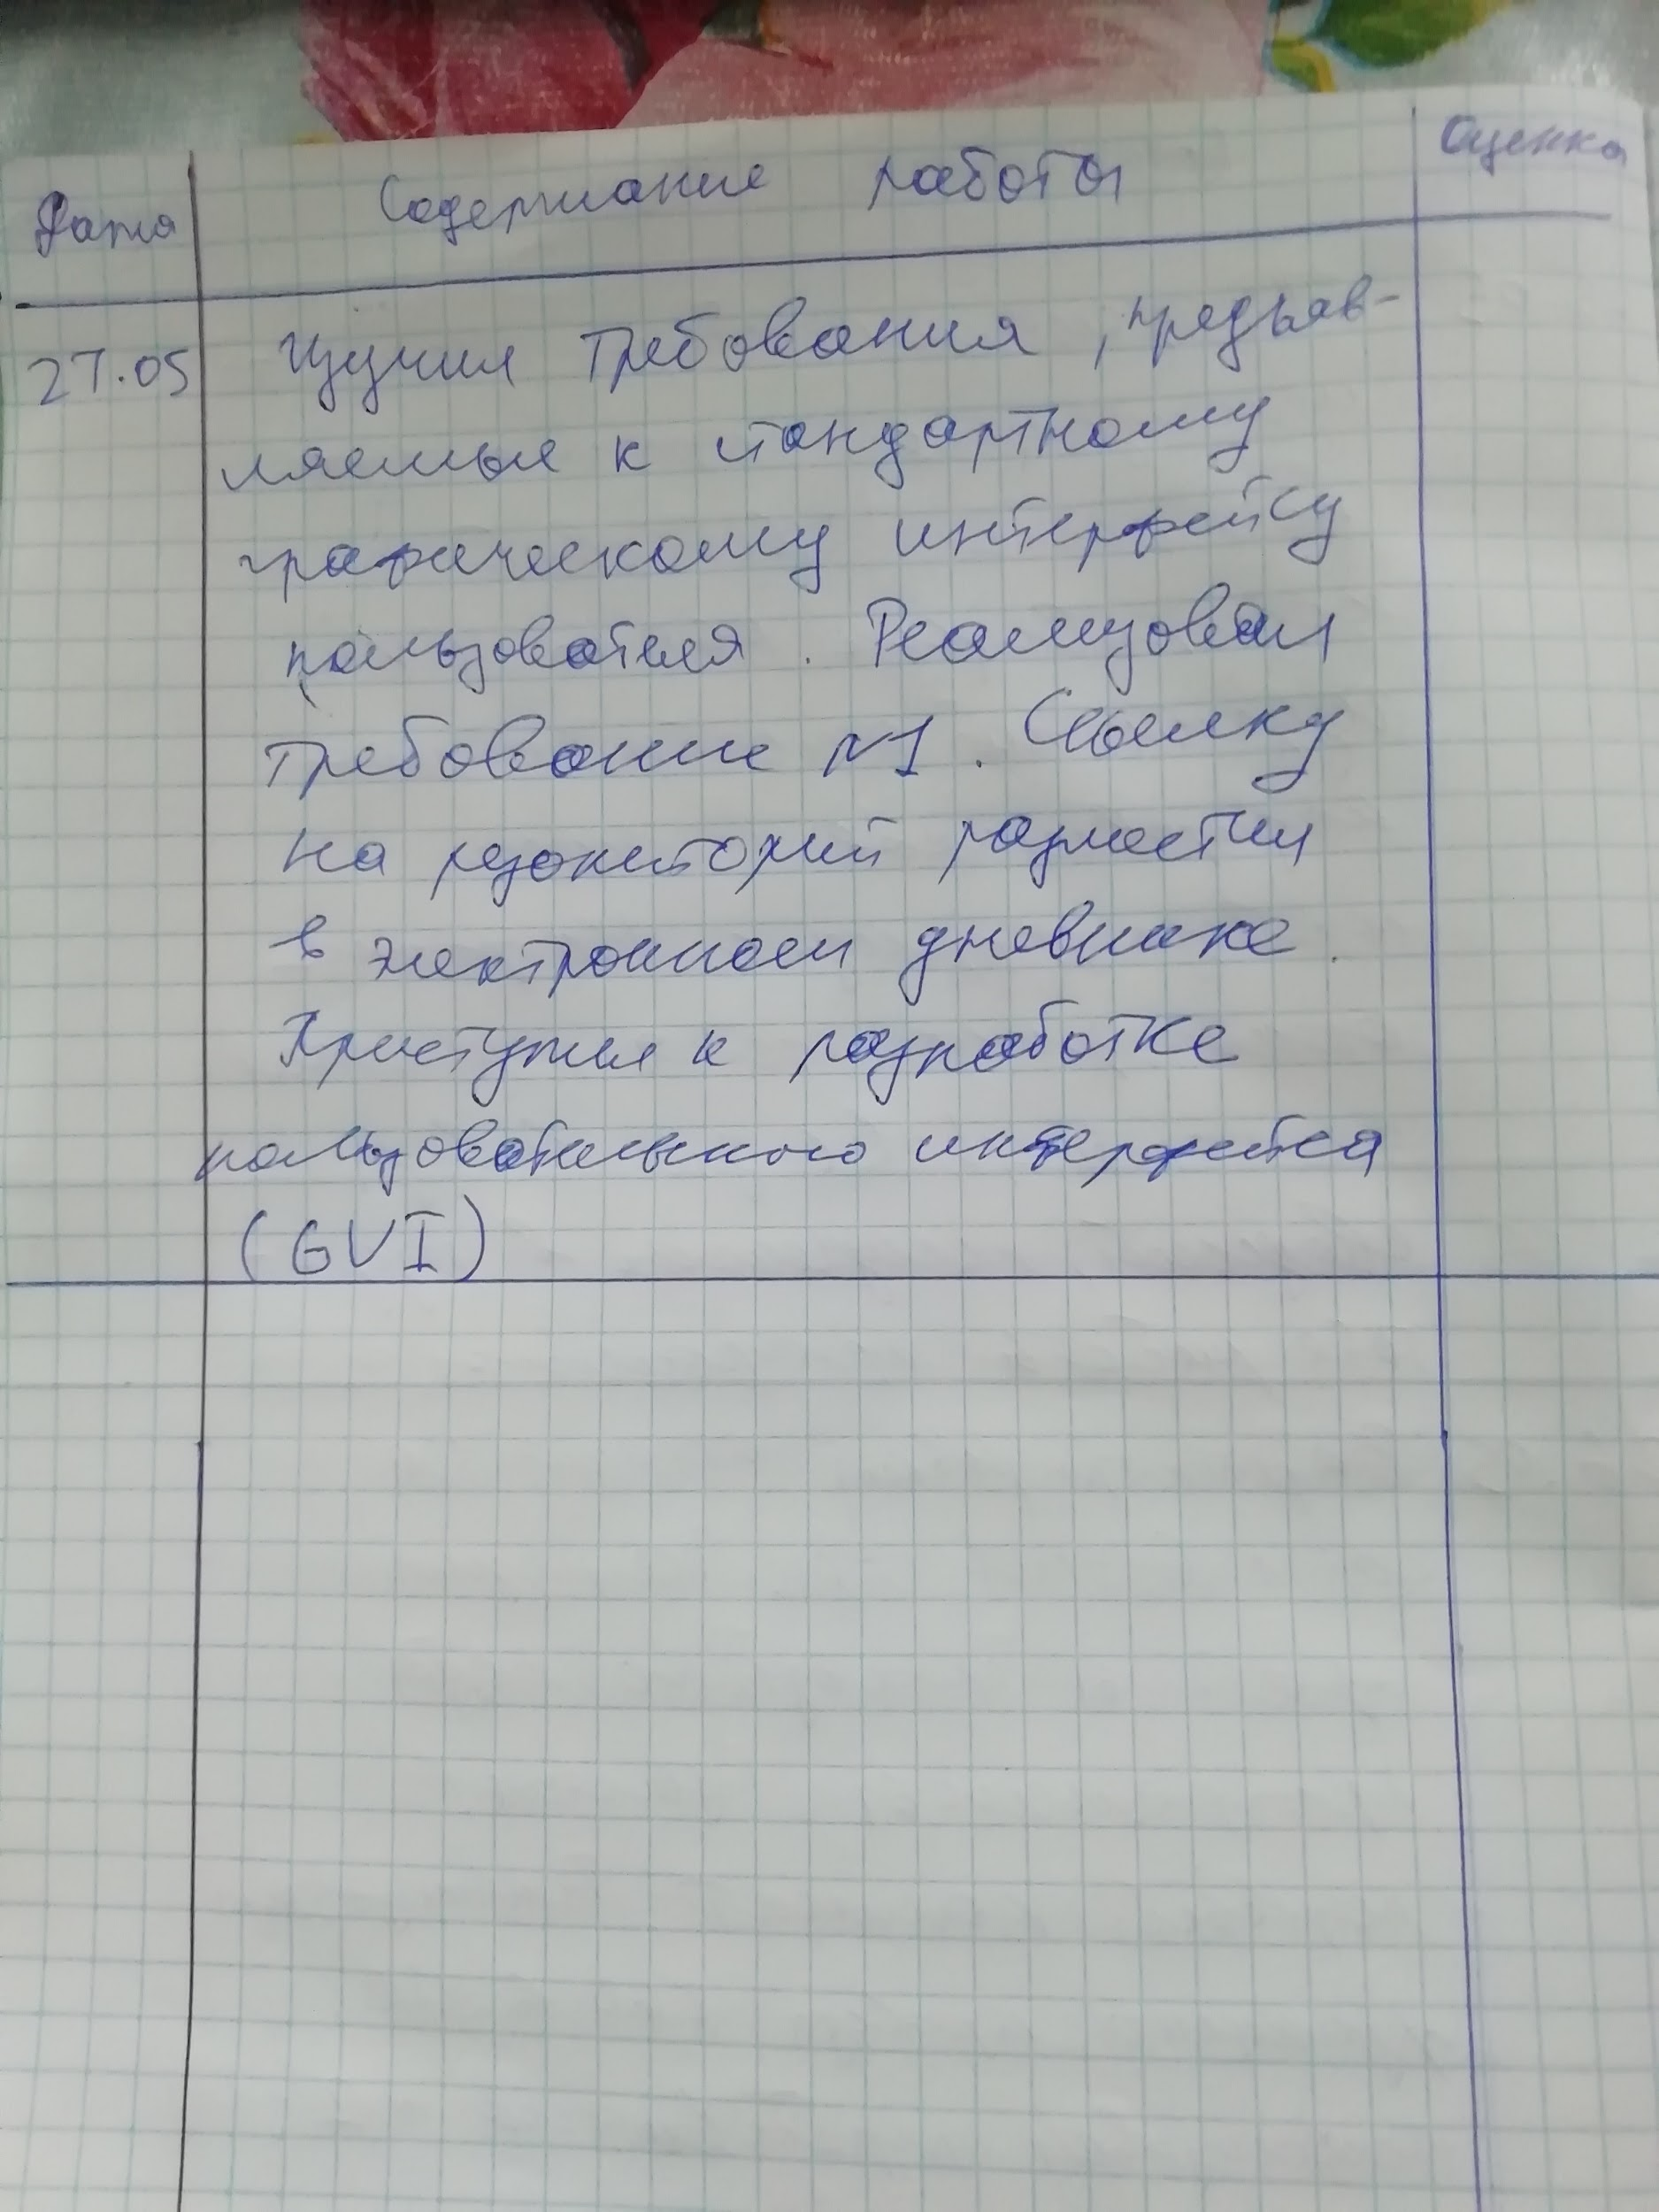 Дата Содержание работы Оценка
27.05 Изучил требования, предъяв-
ляемые к стандартному
графическому интерфейсу
пользователя. Реализовал
требование №1. Ссылку
на репозиторий разместил
в электронном дневнике.
Приступил к разработке
пользовательского интерфейса
(GUI)